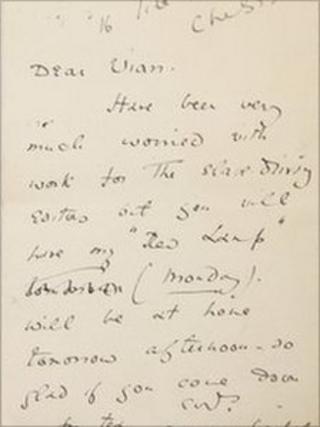 16 Tite Chels
Dear Vian.
Have been very
much worried with
work for the slave driving
Editor but you will
have my "Red Lamp"
(Monday).
will be at home
tomorrow afternoon - so
glad if you come down